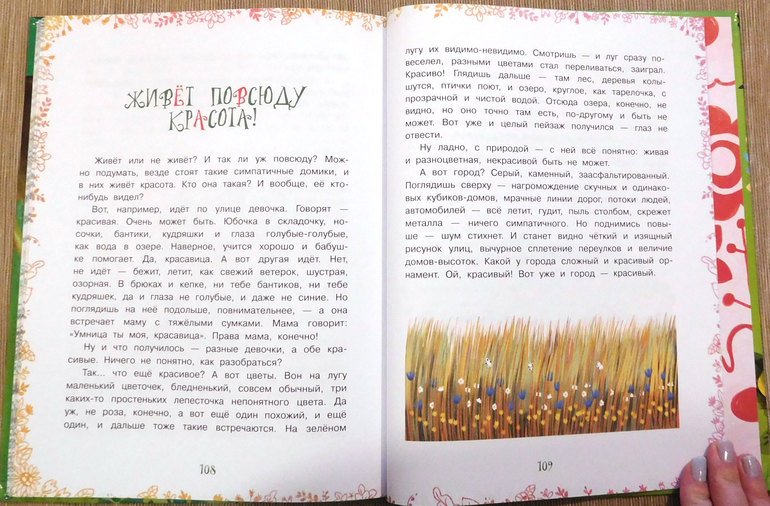 ЖИВЁТ ПОВСЮДУ
КРАСОТА!
Живёт или не живёт? И так ли уж повсюду? Мож-
но подумать, везде стоят такие симпатичные домики, и
в них живёт красота. Кто она такая? И вообще, её кто-
нибудь видел?
Вот, например, идёт по улице девочка. Говорят —
красивая. Очень может быть. Юбочка в складочку, но-
сочки, бантики, кудряшки и глаза голубые-голубые,
как вода в озере. Наверное, учится хорошо и бабуш-
ке помогает. Да, красавица. А вот другая идёт. Нет,
не идёт — бежит, летит, как свежий ветерок, шустрая,
озорная. В брюках и кепке, ни тебе бантиков, ни тебе
кудряшек, да и глаза не голубые, и даже не синие. Но
поглядишь на неё подольше, повнимательнее, — а она
встречает маму с тяжёлыми сумками. Мама говорит:
«Умница ты моя, красавица». Права мама, конечно!
Ну и что получилось — разные девочки, а обе кра-
сивые. Ничего не понятно, как разобраться?
Так... что ещё красивое? А вот цветы. Вон на лугу
маленький цветочек, бледненький, совсем обычный, три
каких-то простеньких лепесточка непонятного цвета. Да
уж, не роза, конечно, а вот ещё один похожий, и ещё
один, и дальше тоже такие встречаются. На зелёном
108
лугу их видимо-невидимо. Смотришь — и луг сразу по-
веселел, разными цветами стал переливаться, заиграл.
Красиво! Глядишь дальше — там лес, деревья колы-
шутся, птички поют, и озеро, круглое, как тарелочка, с
прозрачной и чистой водой. Отсюда озера, конечно, не
видно, но оно точно там есть, по-другому и быть не
может. Вот уже и целый пейзаж получился — глаз не
отвести.
Ну ладно, с природой — с ней всё понятно: живая
и разноцветная, некрасивой быть не может.
А вот город? Серый, каменный, заасфальтированный.
Поглядишь сверху — нагромождение скучных и одинако-
вых кубиков-домов, мрачные линии дорог, потоки людей,
автомобилей — всё летит, гудит, пыль столбом, скрежет
металла — ничего симпатичного. Но поднимись повы-
ше — шум стихнет. И станет видно чёткий и изящный
рисунок улиц, вычурное сплетение переулков и величие
домов-высоток. Какой у города сложный и красивый ор-
намент. Ой, красивый! Вот уже и город — красивый.
109